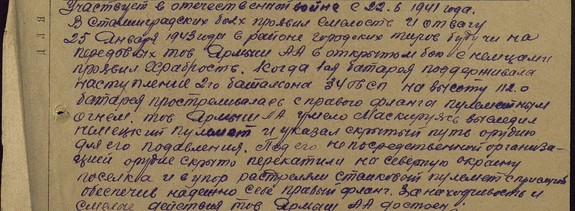 Участвует в отечественной войне с 22.6 1941 года.
В Сталинградских боях проявил смелость и отвагу
25 Января 1943 года в районе городских тиров будучи на
передовых тов Ярмыш АА в открытом бою с немцами
проявил храбрость. Когда 1ая батарея поддерживала
наступление 2го баталиона 34 на высоту 112.0
батарея простреливалась с правого фланга пулеметным
огнем. тов Ярмыш АА умело маскируясь выследил
немецкий пулемет и указал скрытый путь орудию
для его подавления. Под его непосредственной организа-
цией орудие скрытно перекатили на северную окраину
поселка и в упор растреляли станковый пулемет с прислугой
обеспечив надежно себе правый фланг. За находчивость и
смелые действия тов Ярмыш АА достоен